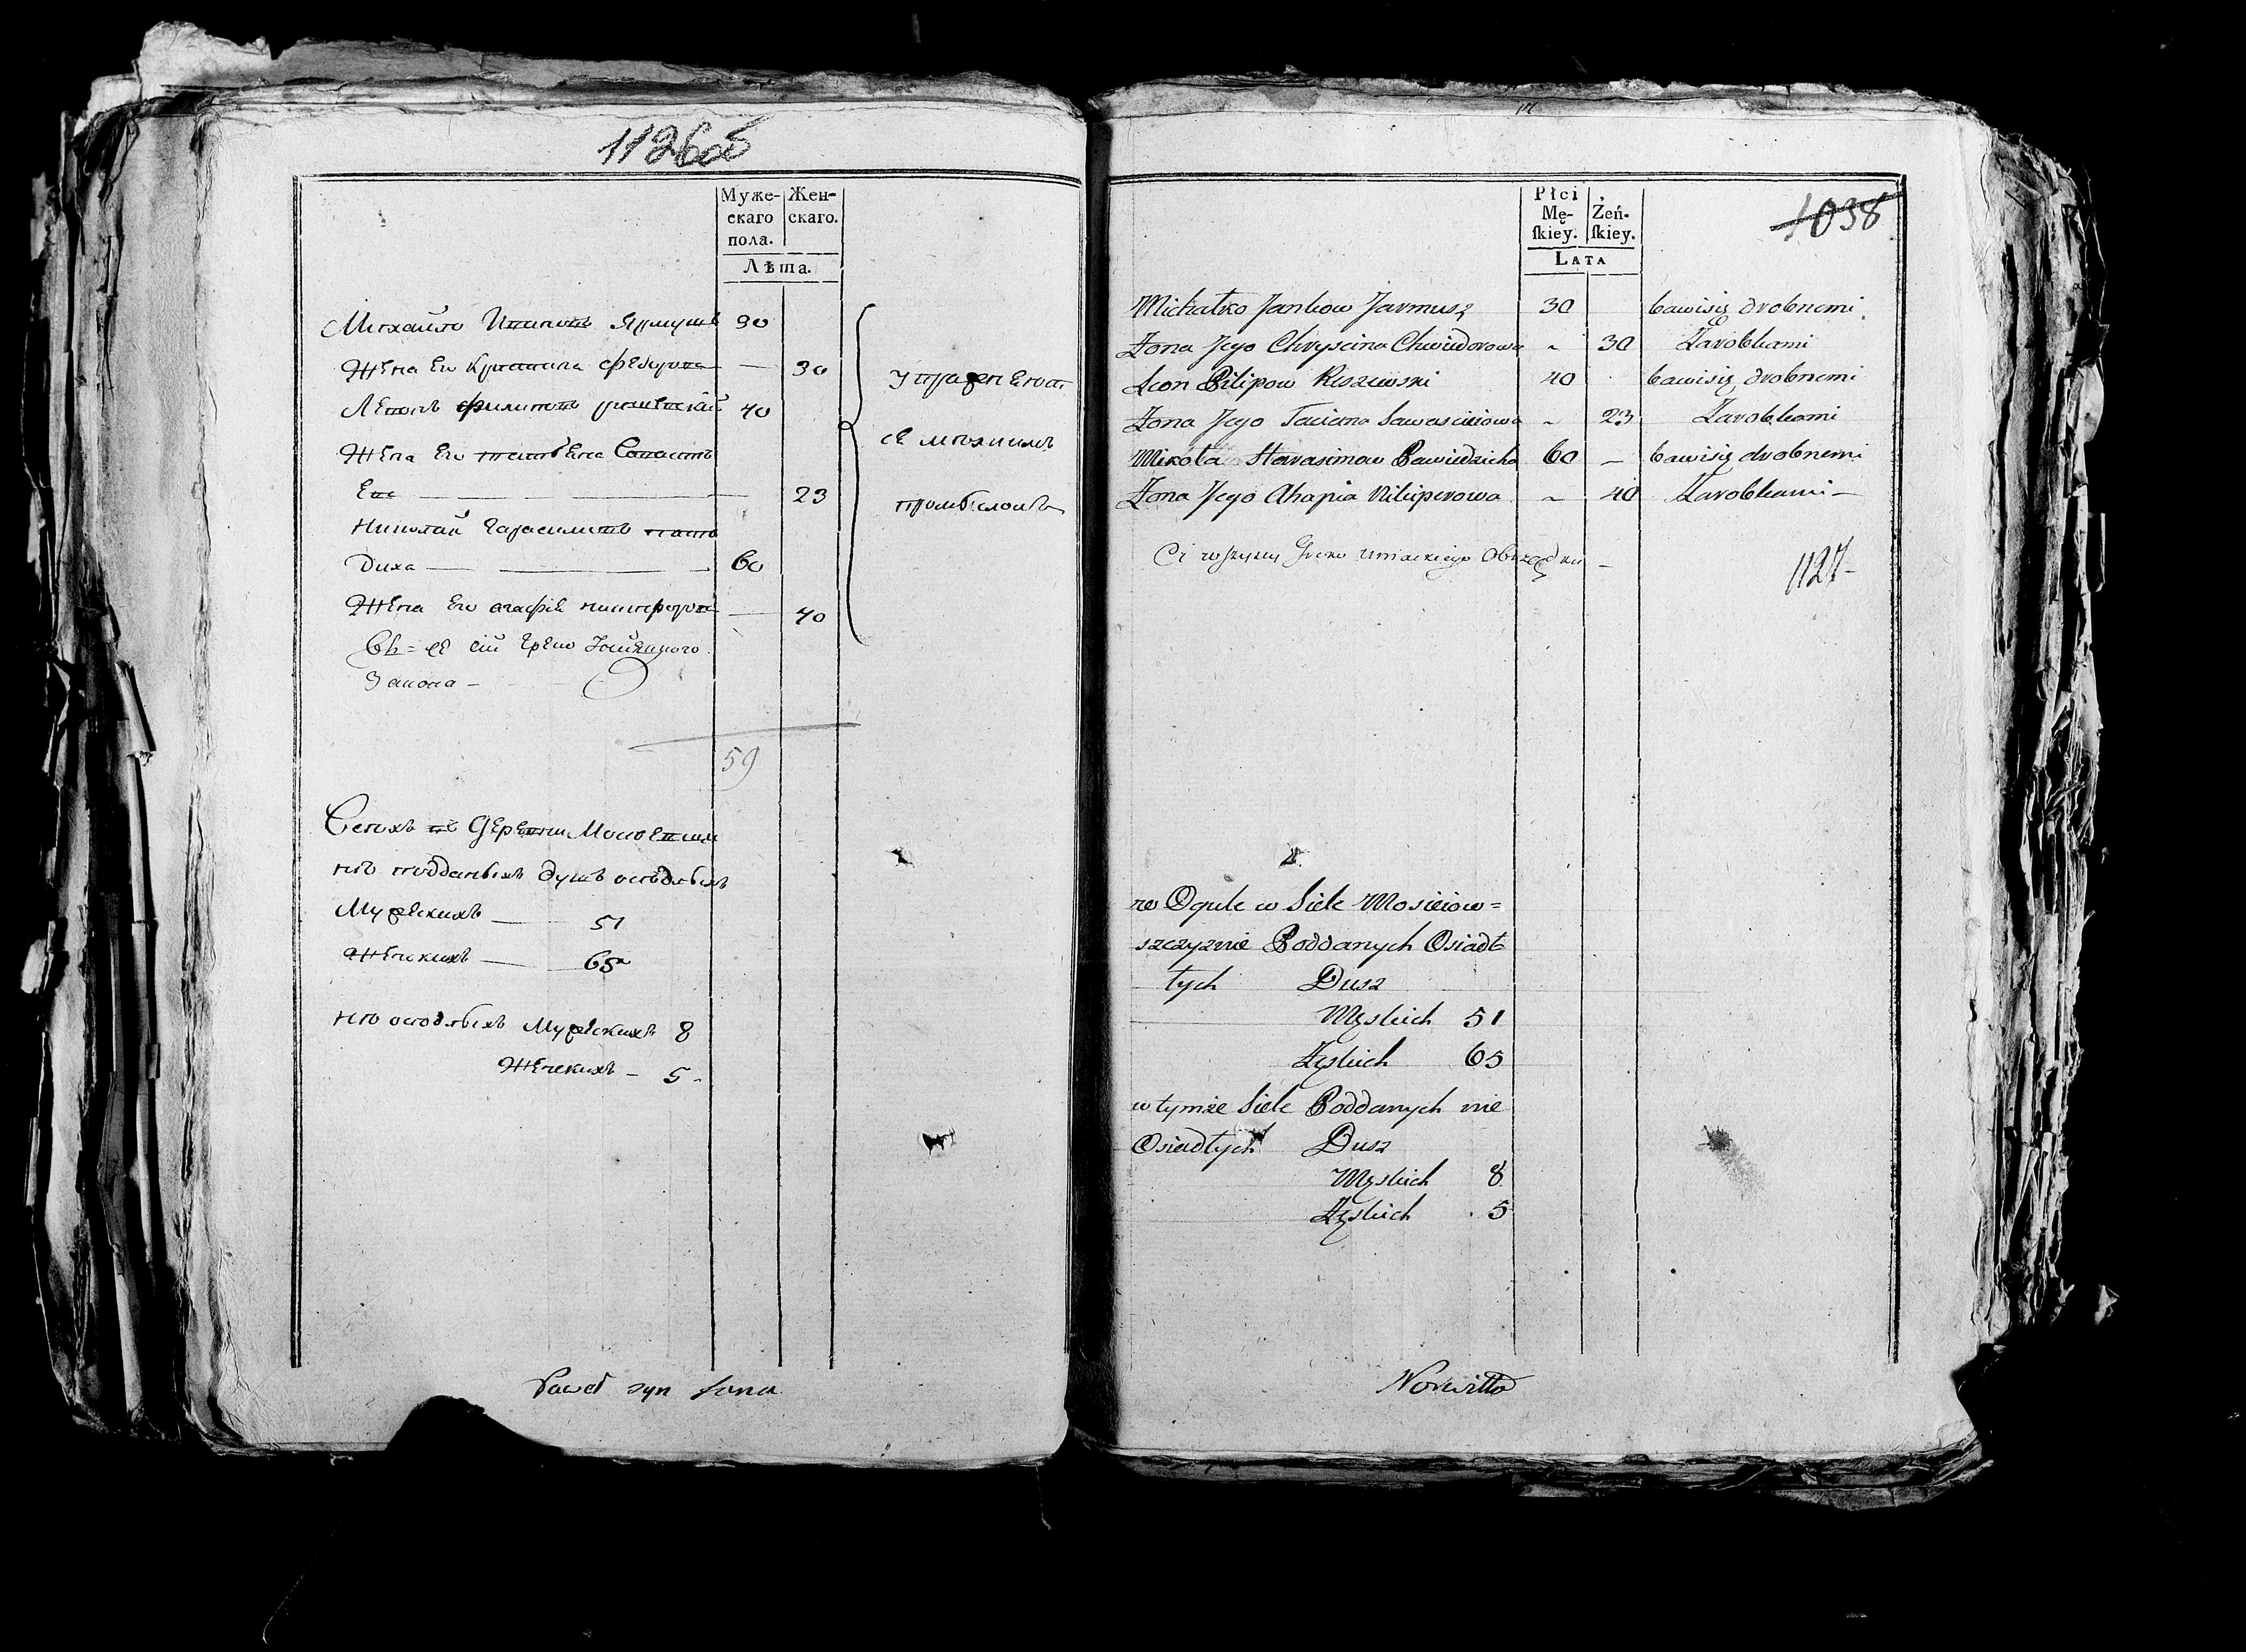 1126об
Муже-
скаго
пола.
Жен-
скаго.
Лѣта.
Михайло Ивановъ Ярмушъ 30
Жена Его Кристина Федорова — 30
Левонъ Филиповъ 40
Жена Его Савасть
Ева — 23
Николай Гарасимовъ
Диха — 60
Жена Его агафiя никифорова — 40
сiи Греко
Закона —
упражняют
ся мѣлкимъ
промысломъ
59
Всехъ въ Деревни Мосев
подданыхъ душъ оседлыхъ
Мужескихъ — 51
Женскихъ — 65
не оседлыхъ Мужескихъ 8
Женскихъ — 5
Paweł syn Jana
Płci
Mę-
ſkiey.
Żeń-
ſkiey.
Lata
1038
Michałko Jankow Jarmusz 30 bawisię drobnemi
Żona Jego Chryscina Chwiedorowa ~ 30 Zarobkami
Leon Pilipow Riszewski 40 bawisię drobnemi
Żona Jego Taciana Sawasciiowa ~ 23 Zarobkami
Mikoła Harasimow Pawiedzicha 60 — bawisię drobnemi
Żona Jego Ahapia Nikiperowa ~ 40 Zarobkami —
Ci wszyscy Greko Uniackiego Obrządku —
1127
w Ogule w Siele Mosieiow=
szczyznie Poddanych Osiadł
łych Dusz
Męskich 51
Żęskich 65
w tymże Siele Poddanych nie
Osiadłych Dusz
Męskich 8
Żęskich 5
Norwiłło